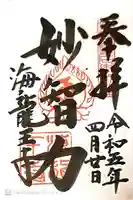 奉拝
令和五年
四月廿日
妙智力
海龍王寺